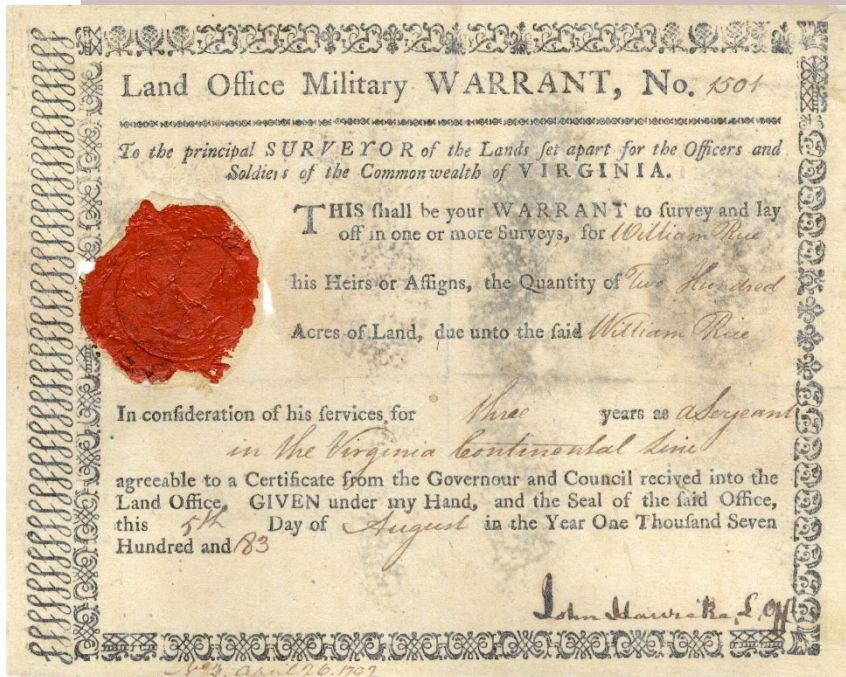 Land Office Military WARRANT, No. 1501
To the principal SURVEYOR of the Lands ſet apart for the Officers and
Soldiers of the Commonwealth of VIRGINIA.
THIS ſhall be your WARRANT to ſurvey and lay
off in one or more Surveys, for William Rice
his Heirs or Aſſigns, the Quantity of Two Hundred
Acres of Land, due unto the ſaid William Rice
In conſideration of his ſervices for three years as a Serjeant
in the Virginia Continental Line
agreeable to a Certificate from the Governour and Council recived into the
Land Office. GIVEN under my Hand, and the Seal of the ſaid Office,
this 5th Day of August in the Year One Thouſand Seven
Hundred and 83
John L, Off
April 26.